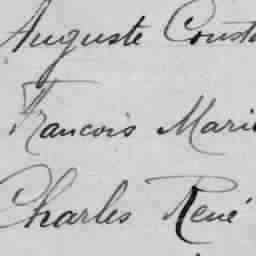 Auguste Const
Francois Marie
Charles René